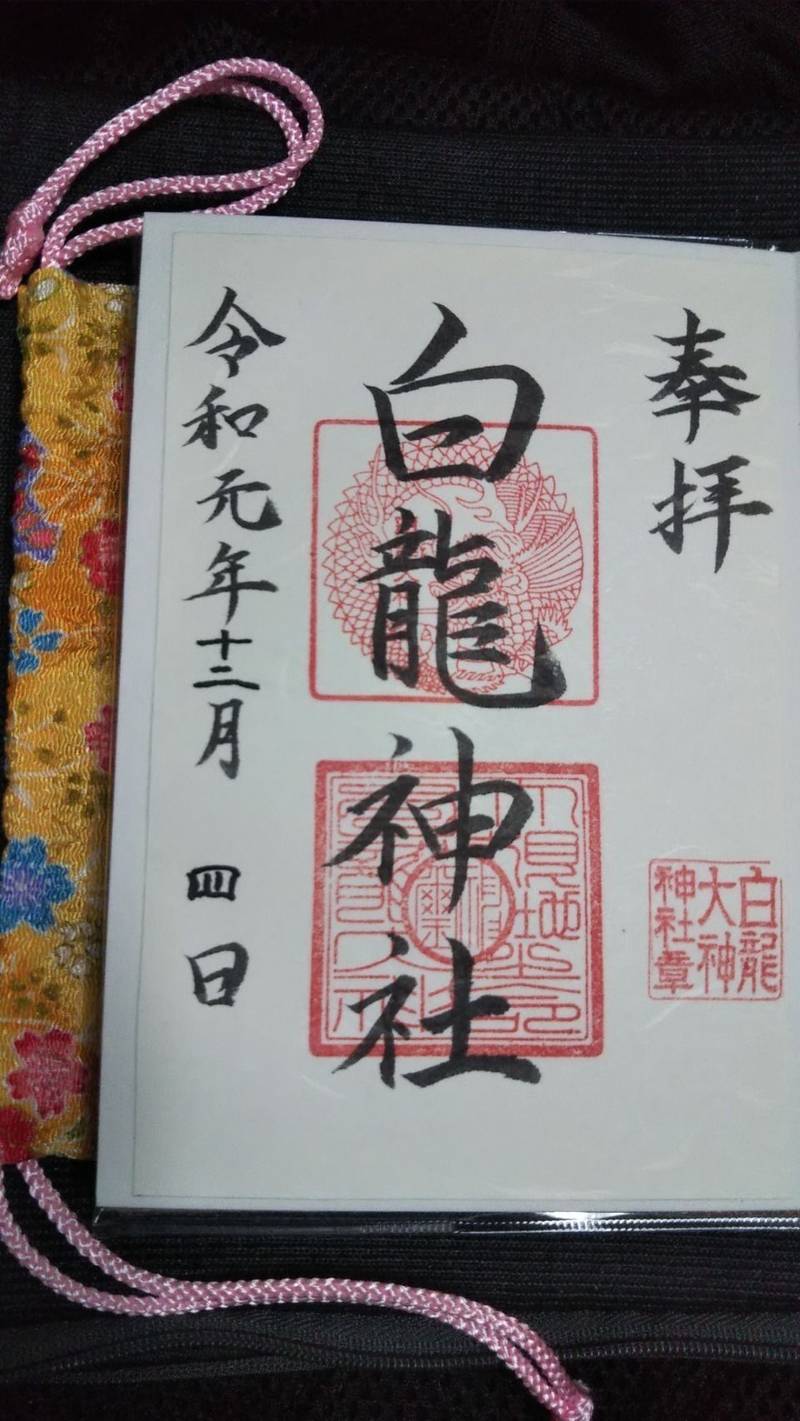 奉拝
白龍
大神
神社章
白龍神社
令和元年十二月 四日